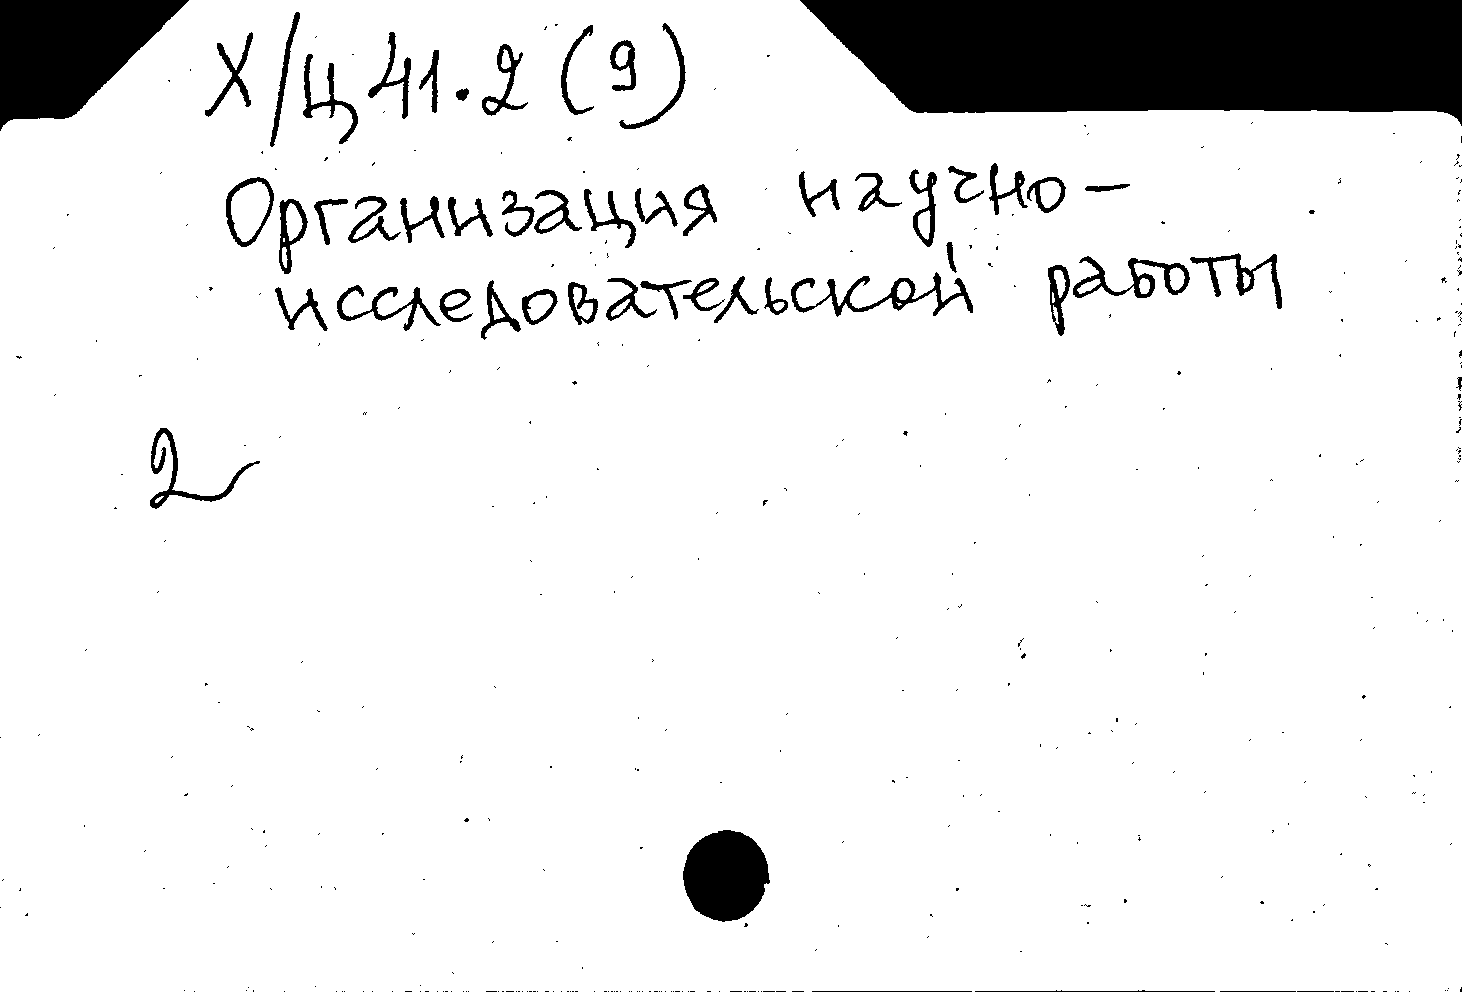 Х/Ц41.2(9)
Организация научно-
исследовательской работы
2